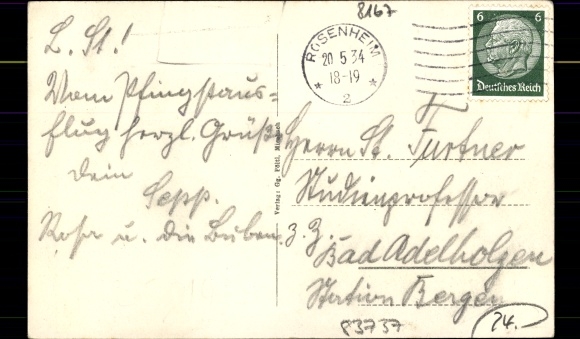 8167
L. St.!
Vom Pfingstaus=
flug herzl. Grüße
dein
Sepp.
Rosa u. die Buben.
ROSENHEIM
20.5.34
18-19
2
6 6
Deutsches Reich
Verlag: Gg. Pöltl, Miesbach
Herrn St. Furtner
Studienprofessor
z. Z.
Bad Adelholzen
Station Bergen
83737
24.